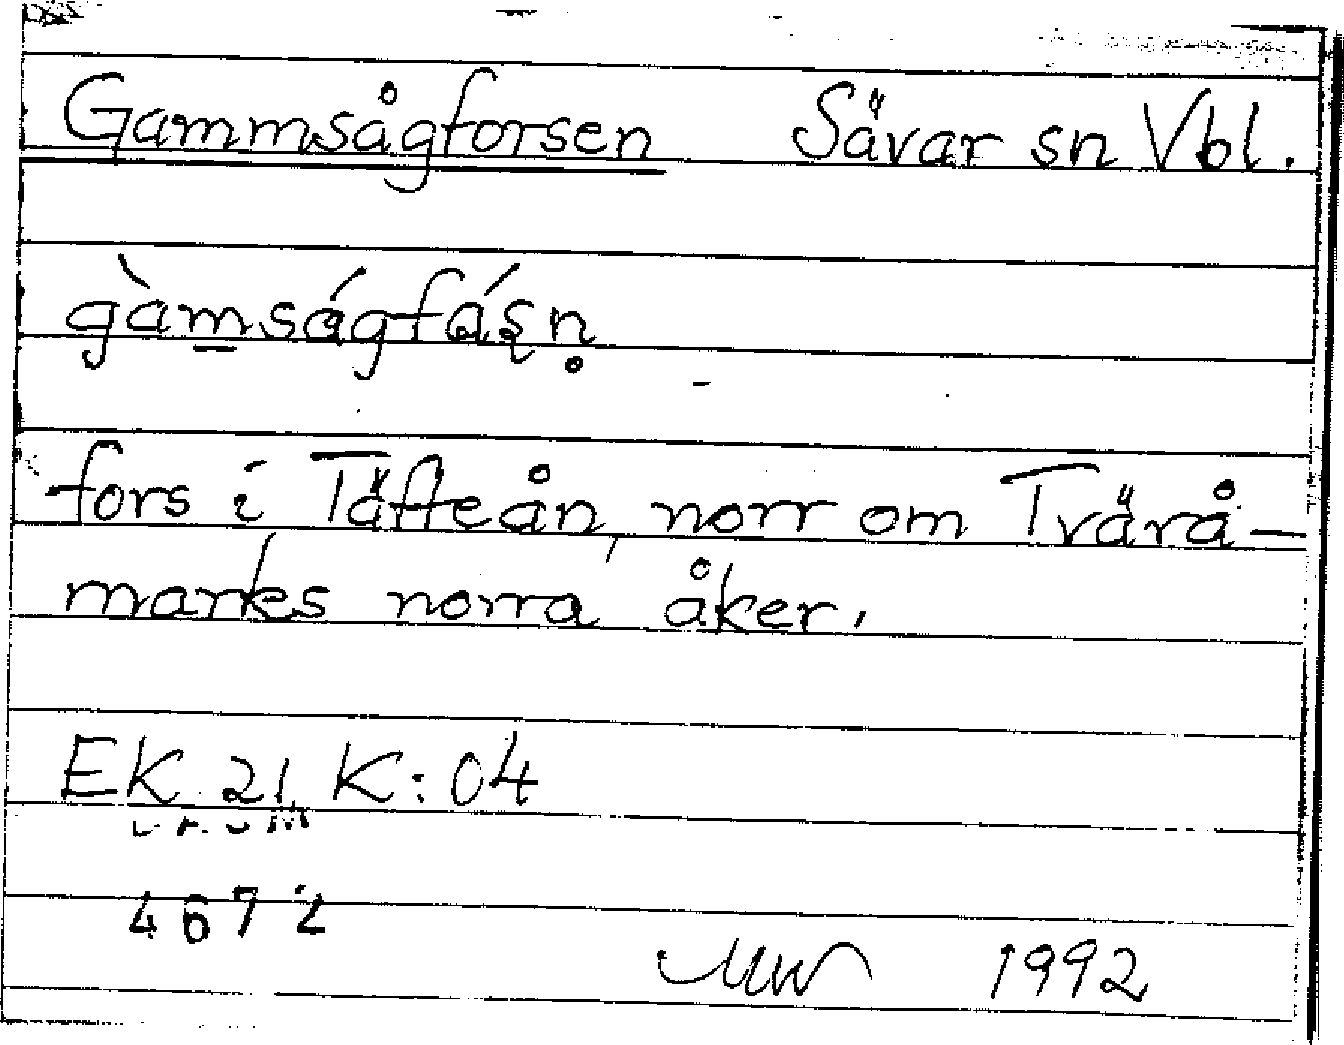 Gammsågforsen Sävar sn Vbl.
gàmságfáʂn̥
fors i Täfteån, norr om Tvärå-
marks norra åker.
EK 21 K:04
4672
MW 1992